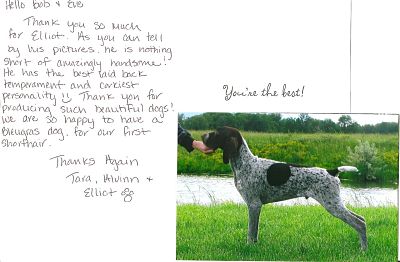 Hello Bob & Eve
Thank you so much
for Elliot. As you can tell
by his pictures, he is nothing
short of amazingly handsome!
He has the best laid back
temperament and
personality!! Thank you for
producing such beautiful dogs!
We are so happy to have a
dog, for our first
shorthair.
Thanks Again
Tara, &
Elliot
You're the best!